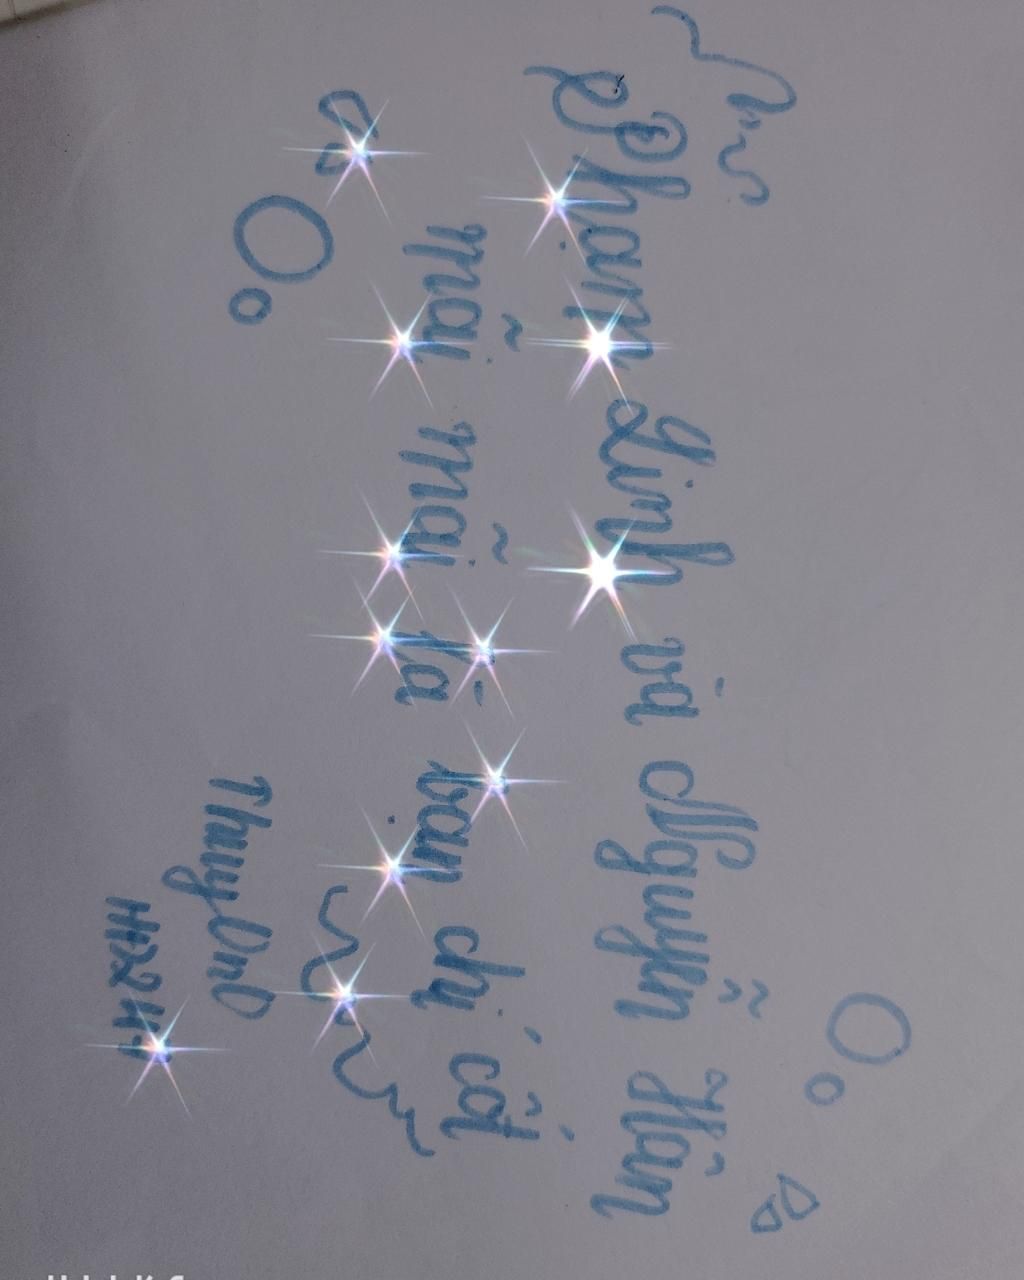 Phạm Linh và Nguyễn Hân
mãi mãi là bạn chí cốt